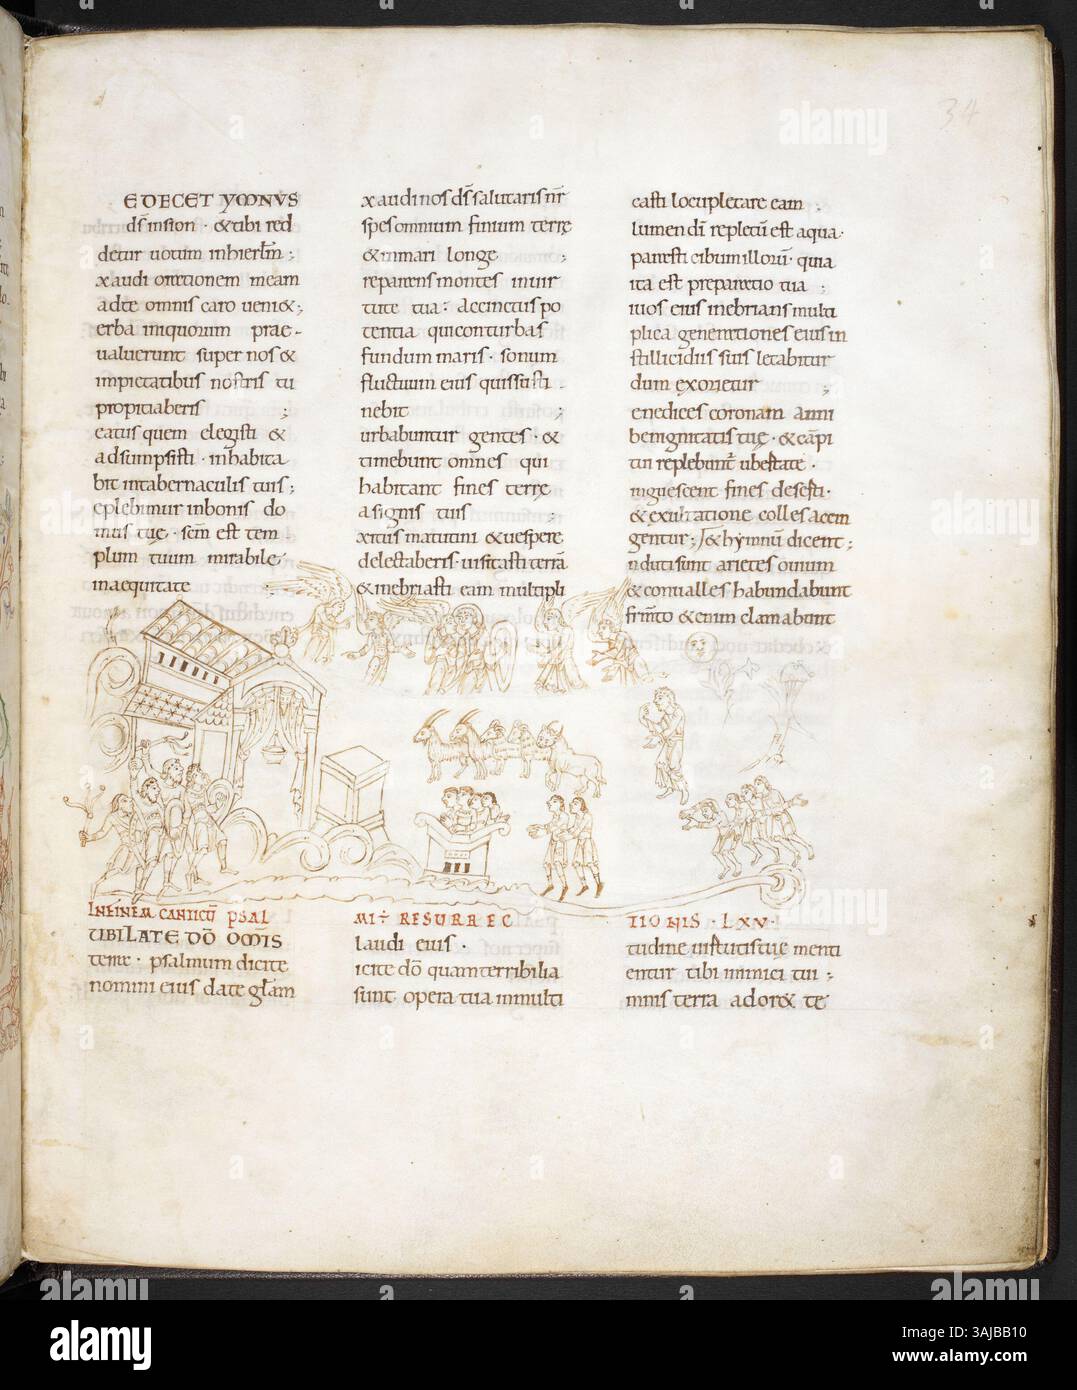 34
E DECET YMNVS
ds insion · & tibi red
detur uotum inhierlm ;
xaudi orationem meam
adte omnis caro ueni& ;
erba iniquorum prae
ualuerunt super nos &
impietatibus nostris tu
propitiaberis ;
eatus quem elegisti &
adsumpsisti · inhabita
bit intabernaculis tuis ;
eplebimur inbonis do
mus tuę · scm est tem
plum tuum mirabile
inaequitate
xaudi nos ds salutaris nr
spes omnium finium terrę
& inmari longe ;
reparans montes inuir
tute tua : accinctus po
tentia qui conturbas
fundum maris · sonum
fluctuum eius quis susti
nebit ;
urbabuntur gentes · &
timebunt omnes qui
habitant fines terrę
a signis tuis ;
xitus matutini & uespere
delectaberis · uisitasti terrā
& inebriasti eam multipli
casti locupletare eam ;
lumen dī repletū est aqua ·
parasti cibum illorū · quia
ita est preparatio tua ;
iuos eius inebrians multi
plica generationes eius in
stillicidiis suis letabitur
dum exorietur ;
enedices coronam anni
benignitatis tuę · & cāpi
tui replebunt ubertate ·
inguescent fines deserti ·
& exultatione colles accin
gentur ; & hymnū dicent ;
nduti sunt arietes ouium
& conualles habundabunt
frmto & enim clamabunt
IN FINEM CANTICŪ PSAL
MI RESURREC
TIONIS · LXV ·
UBILATE DŌ OMIS
terra · psalmum dicite
nomini eius date glam
laudi eius ·
icite dō quam terribilia
sunt opera tua inmulti
tudine uirtutis tuę menti
entur tibi inimici tui ;
mnis terra ador& te
alamy
Image ID: 3AJBB10
www.alamy.com